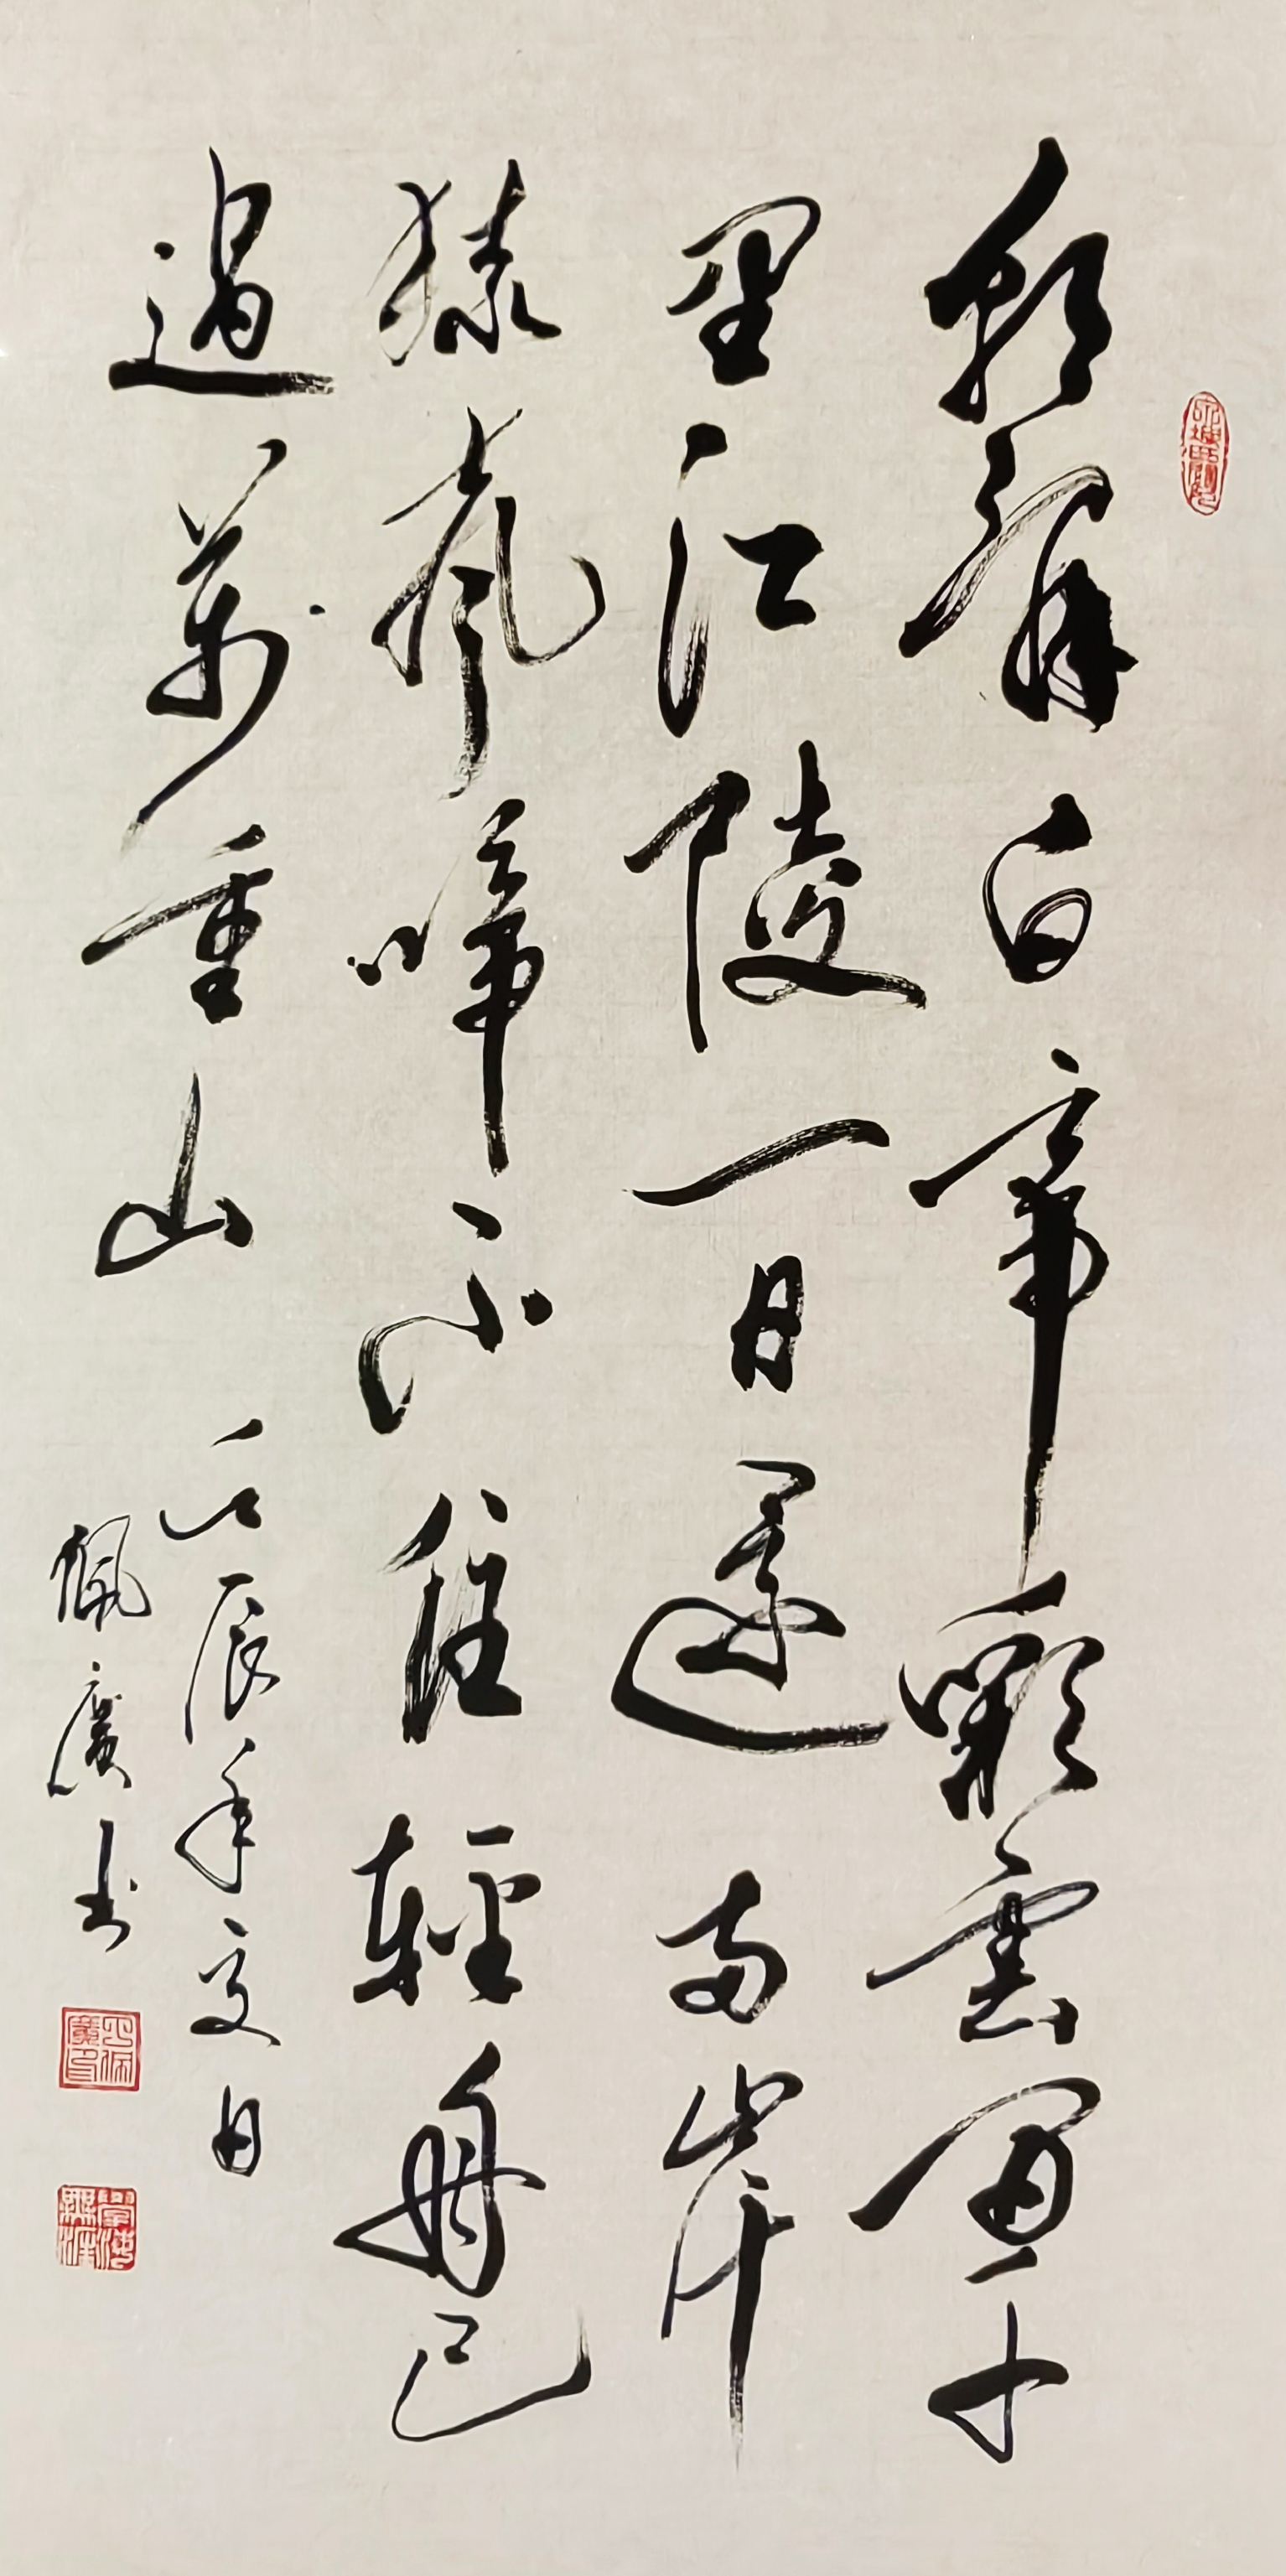 朝辭白帝彩雲間千
里江陵一日還兩岸
猿聲啼不住輕舟已
過萬重山
壬辰年夏日
佩廣書
學海無涯